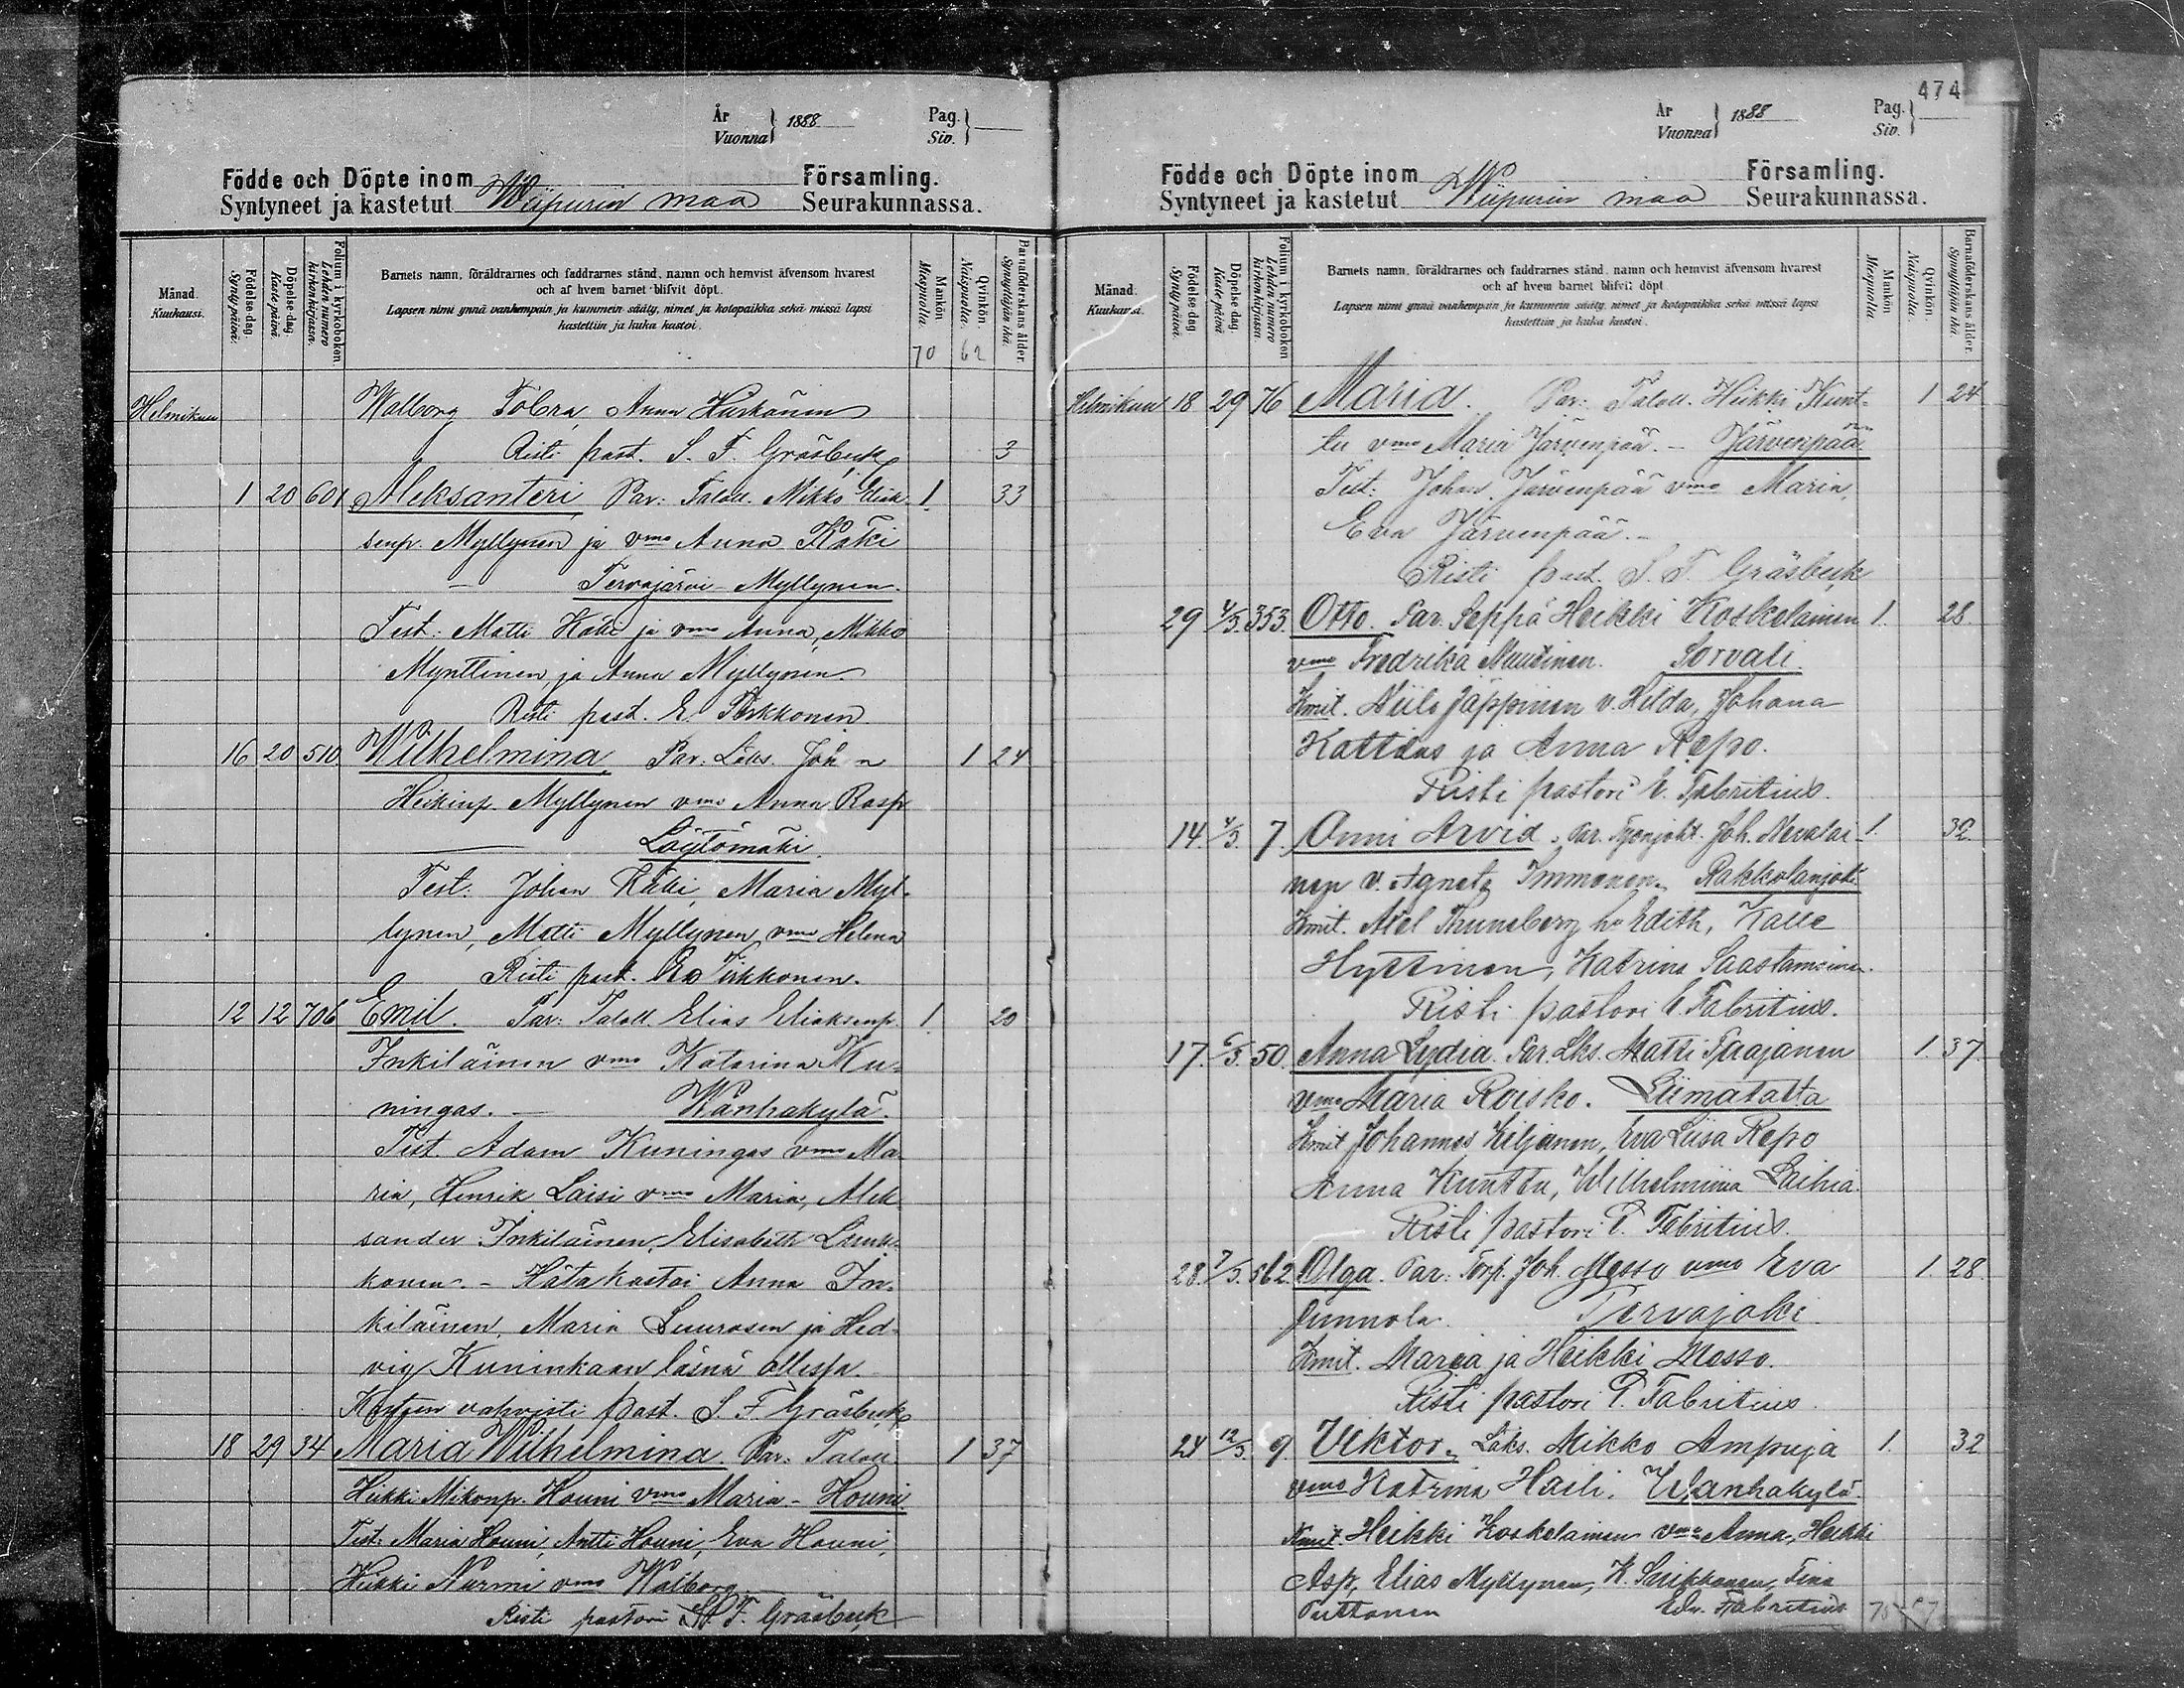 År
Vuonna } 1888
Pag.
Siv. }
Födde och Döpte inom Församling.
Syntyneet ja kastetut Wiipurin maa Seurakunnassa.
Månad.
Kuukausi.
Födelse-dag.
Syntypäivä.
Döpelse-dag.
Kastepäivä.
Folium i kyrkoboken.
Lehden numero kirkonkirjassa.
Barnets namn, föräldrarnes och faddrarnes stånd, namn och hemvist äfvensom hvarest
och af hvem barnet blifvit döpt.
Lapsen nimi ynnä vanhempain ja kummein sääty, nimet ja kotopaikka sekä missä lapsi
kastettiin ja kuka kastoi.
Mankön
Miespuolia.
Qvinkön.
Naispuolia.
Barnaföderskans ålder.
Synnyttäjän ikä.
70 62
Helmikuu Walborg Anna
Risti past. S. F. Gräsbeck 3
1 20 601 Aleksanteri Par: Taloll. Mikko Eliak- 1. 33
senp. Myllynen ja vmo Anna Käki
- Tervajärvi Myllynen.
Test: Matti Käki ja vmo Anna, Mikko
Mynttinen, ja Anna Myllynen.
Risti past. E. Pirkkonen
16 20 510 Wilhelmina. Par: Läks. Joh n 1 24
Heikinp. Myllynen vmo Anna Rasp
Löytömäki.
Test: Johan Käki, Maria Myl-
lynen, Matti Myllynen vmo Helena
Risti past. Pirkkonen.
12 12 706 Emil. Par: Taloll. Elias Eliaksenp. 1. 20
Inkiläinen vmo Katarina Ku-
ningas. - Wanhakylä.
Test. Adam Kuningas vmo Ma-
ria, Henrik Laisi vmo Maria, Alek-
sander Inkiläinen, Elisabeth
konen. - Hätäkastoi Anna In-
kiläinen, Maria Suurosen ja Hed-
vig Kuninkaan läsnä ollessa.
Kasteen vahvisti past. S. F. Gräsbeck
18 29 34 Maria Wilhelmina. Par: Taloll. 1 37
Heikki Mikonp. Houni vmo Maria - Houni
Test: Maria Houni, Antti Houni, Eva Houni,
Heikki Nurmi vmo Walborg.
Risti pastori S. F. Gräsbeck
474
År
Vuonna } 1888
Pag.
Siv. }
Födde och Döpte inom Församling.
Syntyneet ja kastetut Wiipurin maa Seurakunnassa.
Månad.
Kuukausi.
Födelse-dag.
Syntypäivä.
Döpelse-dag.
Kastepäivä.
Folium i kyrkoboken.
Lehden numero kirkonkirjassa.
Barnets namn, föräldrarnes och faddrarnes stånd, namn och hemvist äfvensom hvarest
och af hvem barnet blifvit döpt
Lapsen nimi ynnä vanhempain ja kummein sääty, nimet ja kotopaikka sekä missä lapsi
kastettiin ja kuka kastoi.
Mankön
Miespuolia
Qvinkön.
Naispuolia.
Barnaföderskans ålder.
Synnyttäjän ikä.
Helmikuu 18 29 76 Maria. Par: Taloll. Heikki Kunt- 1 24
tu vmo Maria Järvenpää. - Järvenpää
Test: Johan Järvenpää vmo Maria,
Eva Järvenpää. -
Risti past. S. F. Gräsbeck
29 4/3 353. Otto. Par. Seppä Heikki Koskelainen 1. 28
vmo Fredrika Nuutinen. Sorvali.
Kmit. Niilo Jäppinen v. Hilda, Johana
Kattilus ja Anna Repo.
Risti pastori E. Fabritius.
14. 4/3. 7. Onni Arvid. Par. Työnjoht. Joh. Nevalai- 1. 32
nen v. Agneta Immonen. Rakkolanjoki
Kmit. Axel Thuneberg h. Edith, Kalle
Hyttinen, Katrina Saastamoinen.
Risti pastori E. Fabritius.
17. 6/3. 50. Anna Lydia. Par. Lks. Matti Paajanen 1. 37
vmo Maria Roisko. Liimatatta
Kmit Johannes Kiljanen, Eva Liisa Repo
Anna Kunttu, Wilhelmiina Laihia.
Risti pastori E. Fabritius.
28. 7/3. 562. Olga. Par: Torp. Joh. Messo vmo Eva 1. 28.
Junnola. Tervajoki.
Kmit. Maria ja Heikki Messo.
Risti pastori E. Fabritius.
24 12/3. 9. Viktor. Läks. Mikko Ampuja 1. 32
vmo Katrina Haili. Wanhakylä.
Kmit. Heikki Koskelainen vmo Anna, Heikki
Asp, Elias Myllynen, K. Sarikkanen, Fina
Puttonen Edv. Fabritius 75